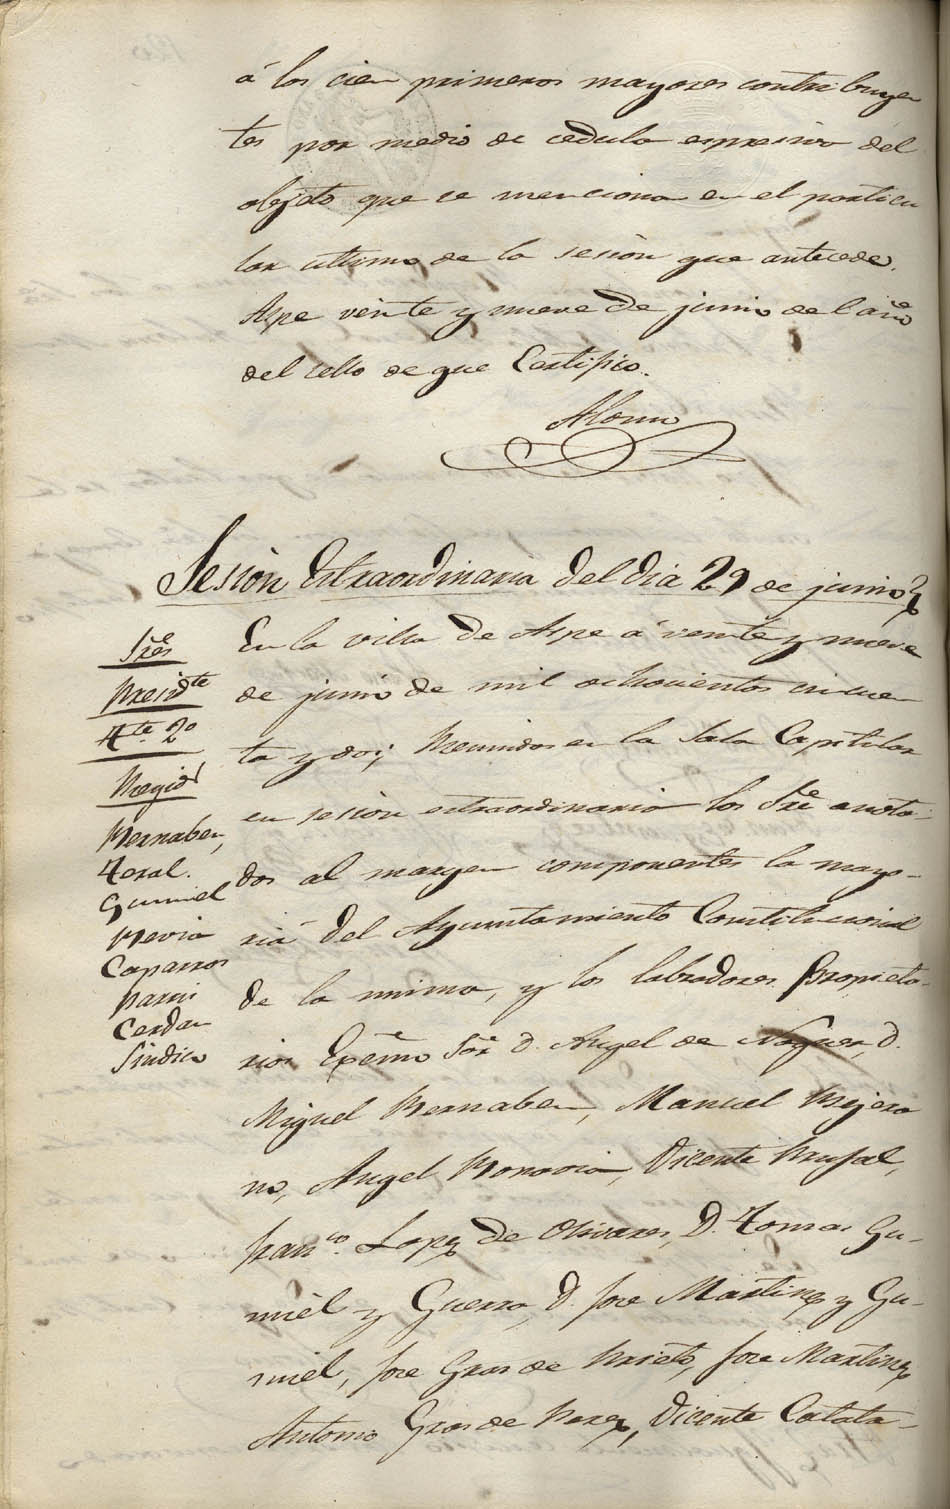 á los cien primeros mayores contribuyen
tes por medio de cedula espresiva del
objeto que se menciona en el particu
lar ultimo de la sesion que antecede.
Aspe veinte y nueve de junio del año
del sello de que Certifico.
Alonso
Sesión Extraordinaria del dia 29 de junio
Sres
Presidte
Tte 2o
Regid
Bernabeu,
Toral.
Gumiel
Bevia
Caparros
Cerdan
Sindico
En la villa de Aspe á veinte y nueve
de junio de mil ochocientos cincuen
ta y dos; Reunidos en la Sala Capitular
en sesion extraordinaria los Sres anota-
dos al margen componentes la mayo-
ria del Ayuntamiento Constitucional
de la misma, y los labradores Propieta-
rios Excmo Sor D. Angel de Noguer, D.
Miguel Bernabeu, Manuel Mejera
no, Angel Bonovia, Vicente
Franco. Lopez de Olivares, D. Tomas Gu-
miel y Guerra, D. Jose Martinez y Gu-
miel, Jose Gras de Prieto, Jose Martinez
Antonio Gras de Perez, Vicente Catala-